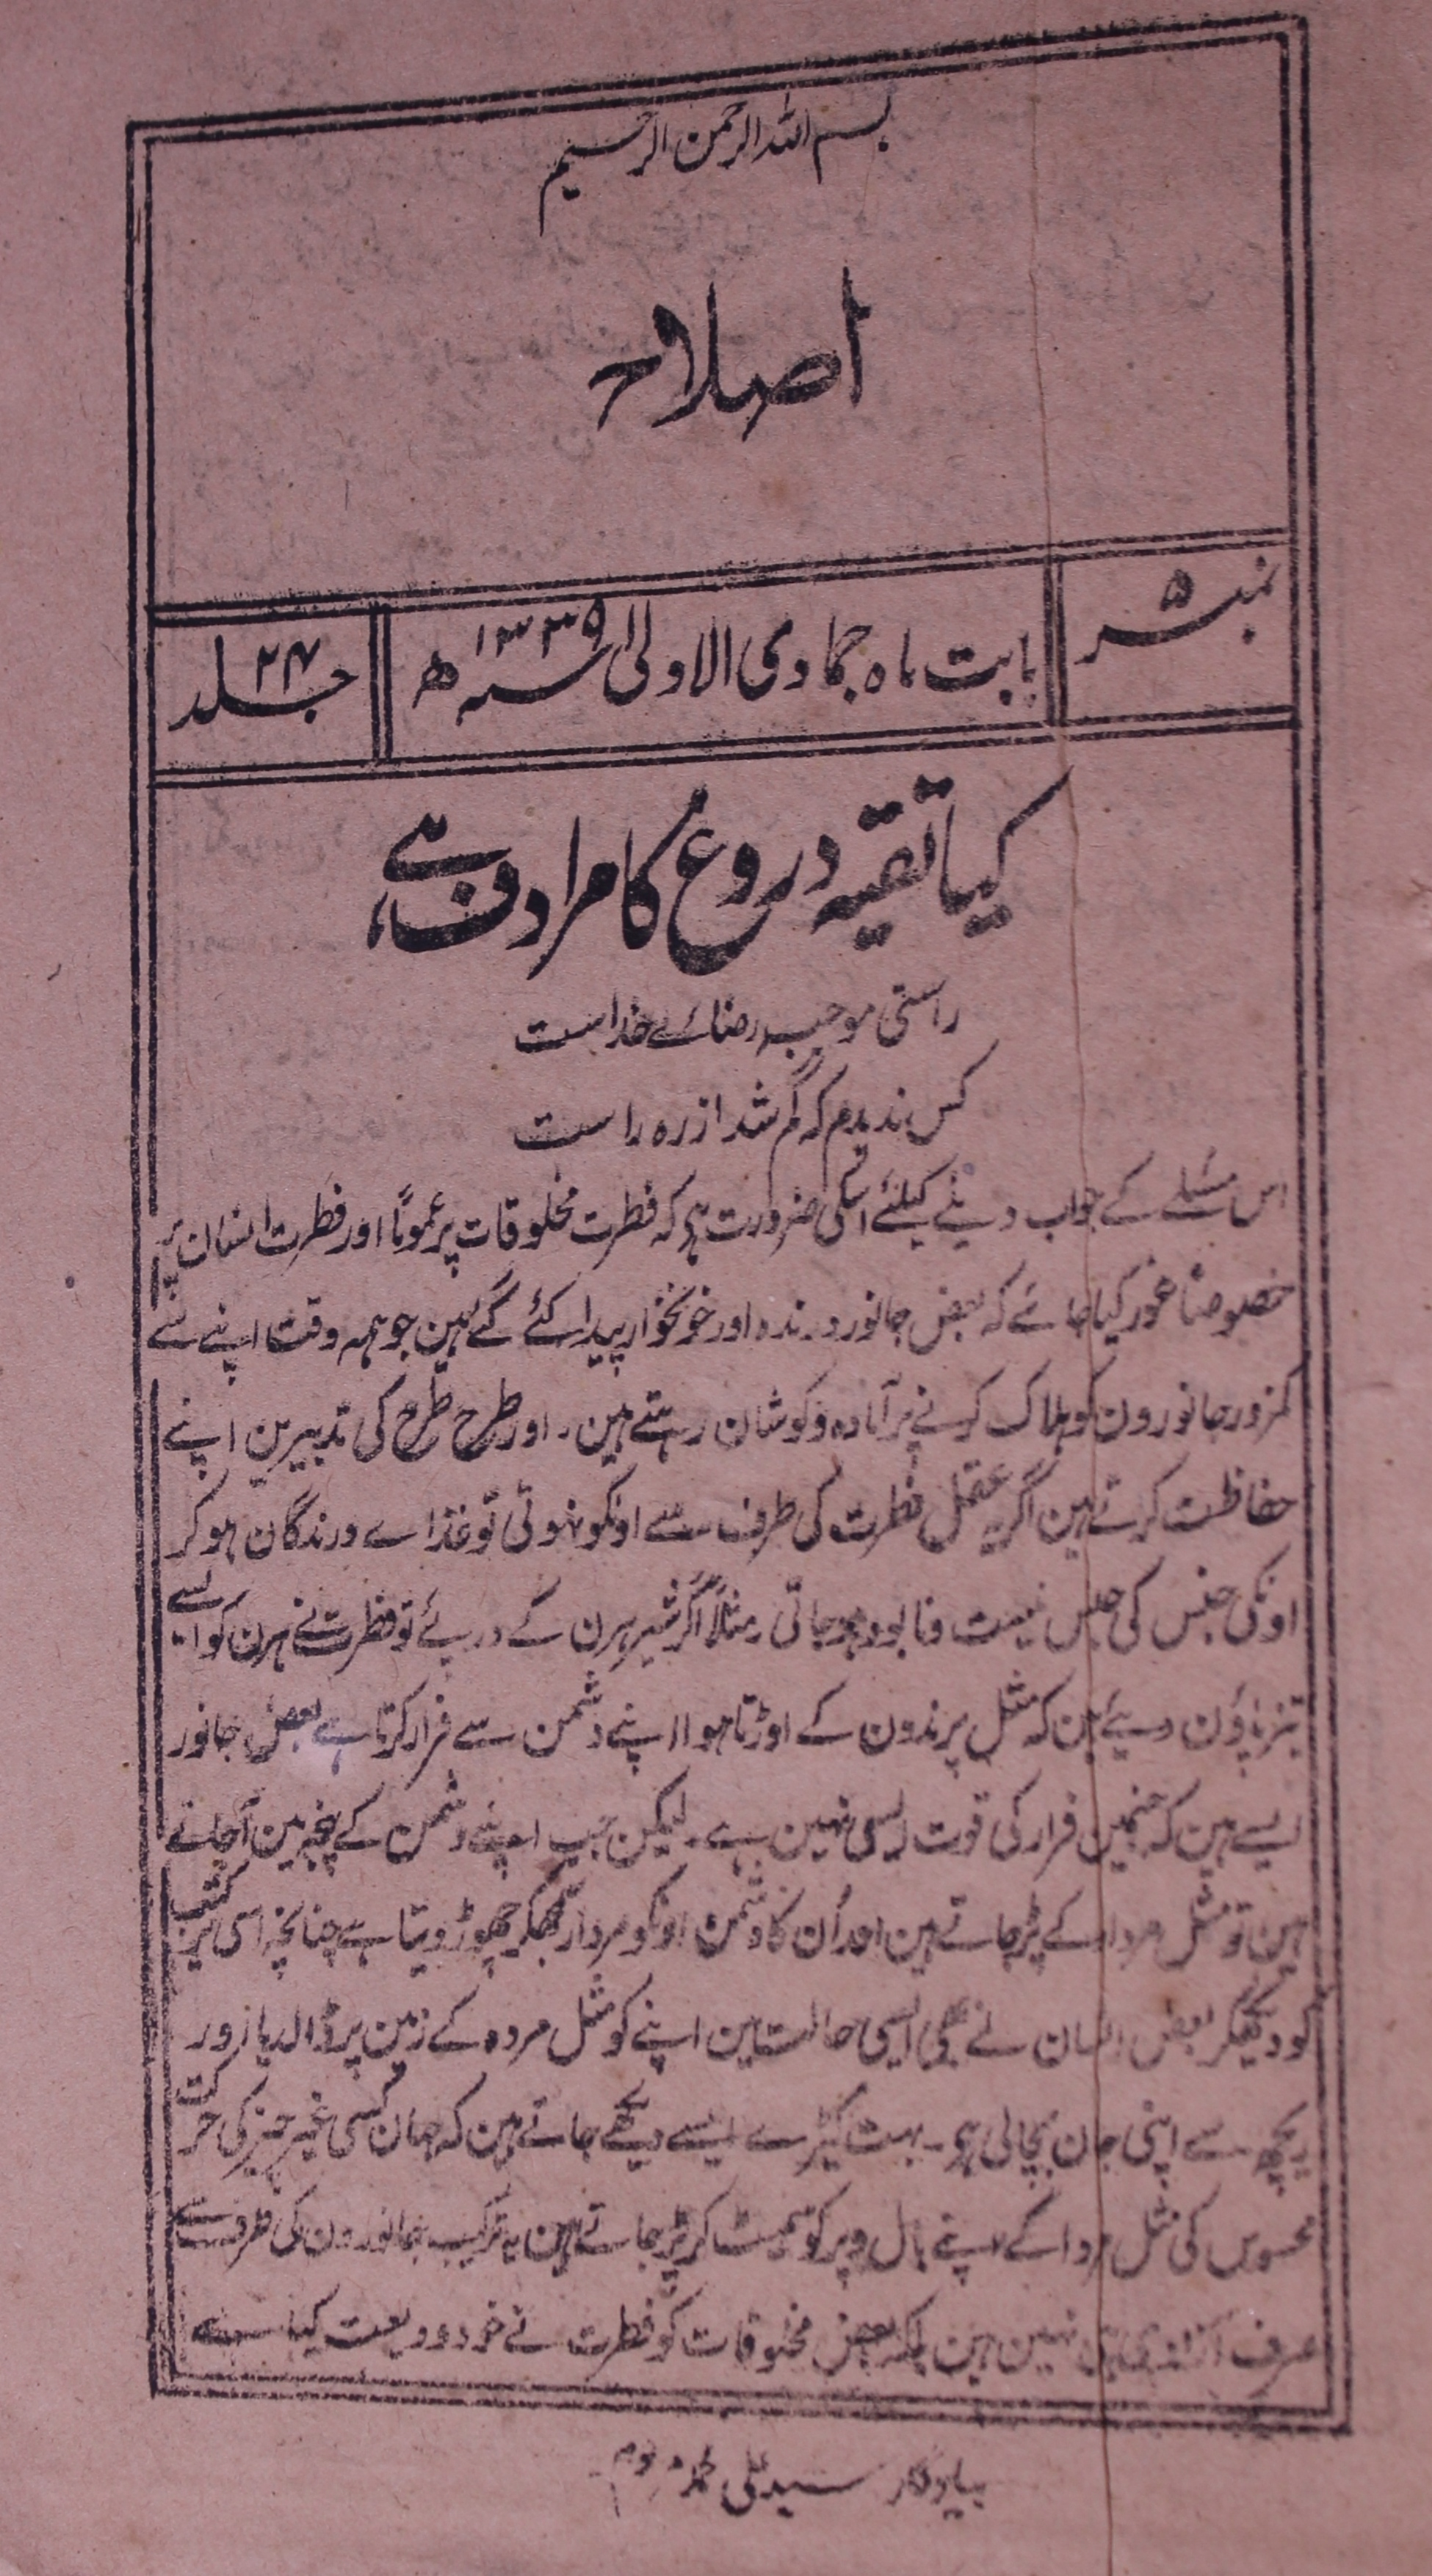 بسم اللہ الرحمن الرحیم
اصلاح
نمبر ۵
بابت ماہ جمادی الاولیٰ سنہ ۱۳۳۹ ھ
جلد ۲۴
کیا تقیہ دروغ کا مرادف ہے،
راستی موجب رضائے خداست
کس ندیدم کہ گم شد از رہ راست
اس مسئلے کے جواب دینے کیلئے اسکی ضرورت ہی کہ فطرت مخلوقات پر عموماً اور فطرت انسان پر
خصوصاً غور کیا جائے کہ بعض جانور درندہ اور خونخوار پیدا کئے گے ہین جو ہمہ وقت اپنے سے
کمزور جانورون کو ہلاک کرنے پر آمادہ و کوشان رہتے ہین۔ اور طرح طرح کی تدبیرین اپنے
حفاظت کرتے ہین اگر یہ عقل فطرت کی طرف سے اونکو نہوتی تو غذاے درندگان ہو کر
اونکی جنس کی جنس نیست و نابود ہو جاتی مثلاً اگر شیر ہرن کے درپئے تو فطرت نے ہرن کو ایسے
تیز پاؤن دیئے ہین کہ مثل پرندون کے اوڑتا ہوا اپنے دشمن سے فرار کرتا ہے بعض جانور
ایسے ہین کہ جنمین فرار کی قوت ایسی نہین ہے۔ لیکن جب اپنے دشمن کے پنجہ مین آجاتے
ہین تو مثل مردار کے پڑ جاتے ہین اور اُن کا دشمن اونکو مردار سمجھکر چھوڑ دیتا ہے چنانچہ اسی ترکیب
کو دیکھکر بعض انسان نے بھی ایسی حالت مین اپنے کو مثل مردہ کے زمین پر ڈالدیا اور
ریچھ سے اپنی جان بچالی ہی۔ بہت کیڑے ایسے دیکھے جاتے ہین کہ جہان کسی غیر چیز کی حرکت
محسوس کی مثل مردا کے اپنے بال و پر کو سمٹ کر پڑ جاتے ہین یہ ترکیب جانورون کی طرف سے
صرف نہین ہین بلکہ بعض مخلوقات کو فطرت نے خود ودیعت کیا ہے
بیادگار سید علی محمد مرحوم